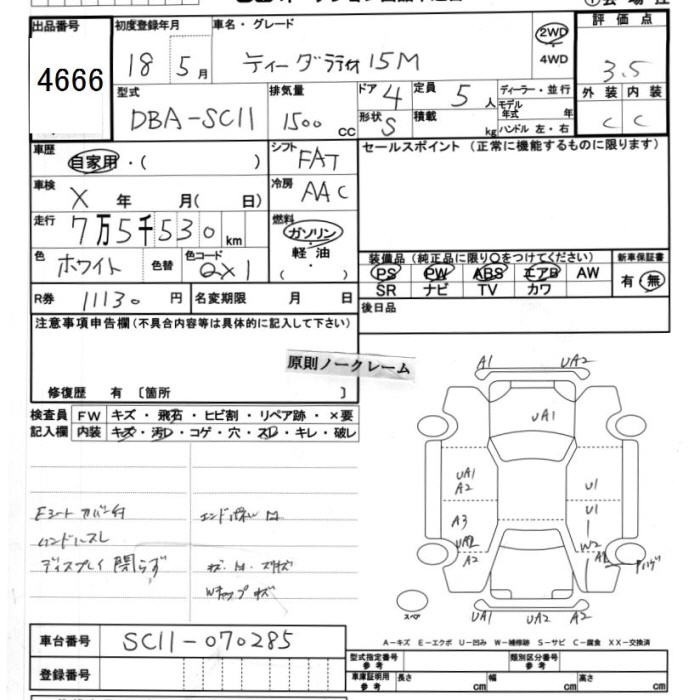 出品番号
4666
初度登録年月
18 5月
車名・グレード
ティーダラティオ 15M
2WD
・
4WD
評価点
3.5
外装 内装
C C
型式
DBA-SC11
排気量
1500 CC
ドア 4
形状 S
定員 5人
積載 kg
ディーラー・並行
モデル年式 年
ハンドル 左・右
車歴
自家用・( )
シフト FAT
冷房 AAC
セールスポイント (正常に機能するものに限ります)
車検
X 年 月( 日)
走行
7万5千530 km
燃料
ガソリン
・
軽油
( )
色 ホワイト 色替
色コード QX1
装備品 (純正品に限り○をつけてください)
PS PW ABS エアB AW
SR ナビ TV カワ
新車保証書
有 無
R券 11130 円
名変期限 月 日
後日品
注意事項申告欄 (不具合内容等は具体的に記入して下さい)
原則ノークレーム
修復歴 有 〔箇所 〕
検査員 FW キズ・飛石・ヒビ割・リペア跡・×要
記入欄 内装 キズ・汚レ・コゲ・穴・スレ・キレ・破レ
Fシートカバー付
ハンドルスレ
ディスプレイ閉らず
エンドパネル
A1 UA2
UA1
UA1
A2
U1
U1
A3
W2
A2
スペア
UA1 UA2 A2
A-キズ E-エクボ U-凹み W-補修跡 S-サビ C-腐食 XX-交換済
車台番号 SC11-070285
登録番号
型式指定番号
参考
類別区分番号
参考
車庫証明用
参考
長さ cm
幅 cm
高さ cm